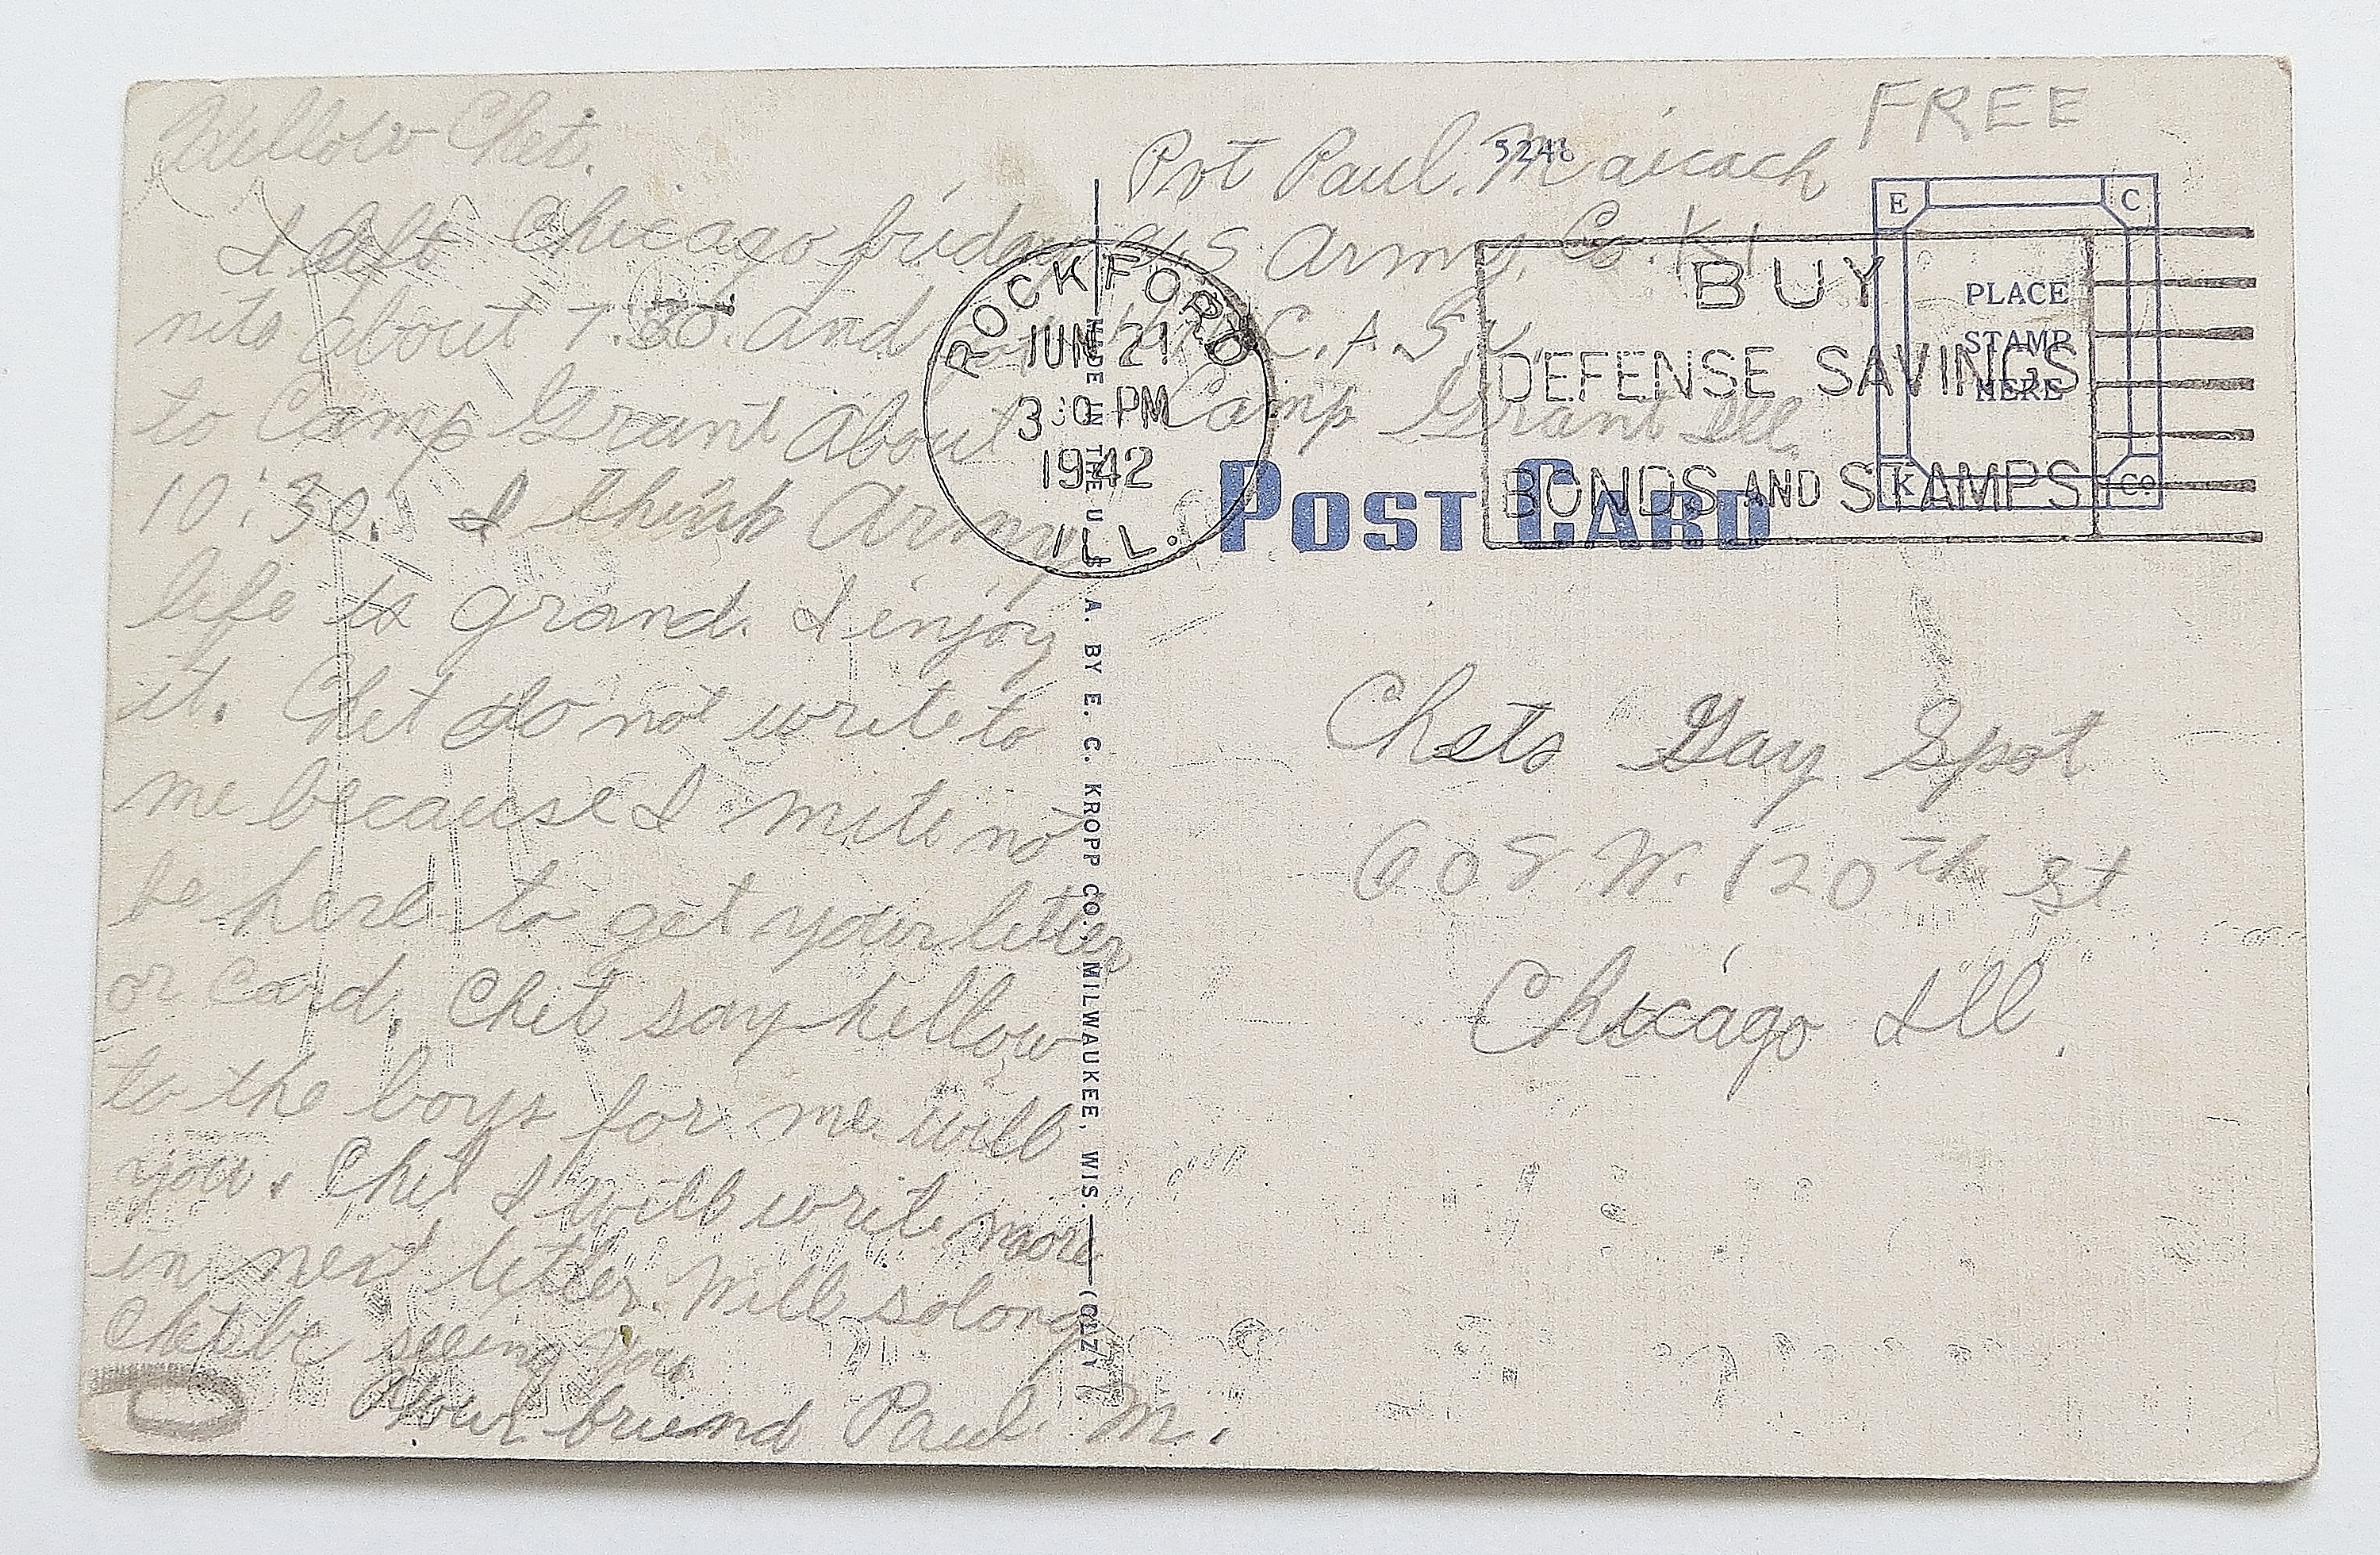 Hellow Chet.
I left Chicago friday
nite about 7.30. and
to Camp Grant about
10:30. I think Army
life is grand. I injoy
it. Chet do not write to
me because I mite not
be here to get your letter
or card. Chet say hellow
to the boys for me will
you. Chet I will write more
in next letter. Will solong
Chet be seeing you
Your friend Paul. M.
FREE
Pvt Paul. Maicach
5248
U.S Army. Co. K
C.A.S.U.
Camp Grant Ill.
ROCKFORD
JUN 21
3 30 PM
1942
ILL.
BUY
DEFENSE SAVINGS
BONDS AND STAMPS
E C
PLACE
STAMP
HERE
K Co
POST CARD
MADE IN THE U. S. A. BY E. C. KROPP CO., MILWAUKEE, WIS.
Chets Gay Spot
608 W. 120th St
Chicago Ill.